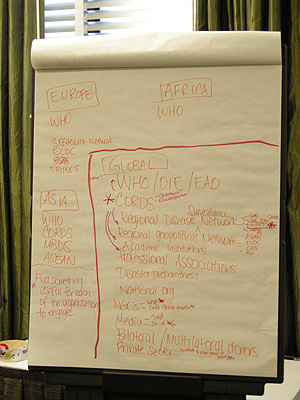 EUROPE
WHO
SEEHealth Network
ECDC
TRIPLES
AFRICA
WHO
ASIA
WHO
CORDS
MBDS
ASEAN
* Find something
useful for each
of the organizations
to engage
GLOBAL
WHO/OIE/FAO
* CORDS
Surveillance
Regional Disease Network
Regional geopolitical Network
Academic Institutions
Professional Associations
Disaster preparedness
National org.
NGOs -
Media -
Bilateral / Multilateral donors
Private Sector -